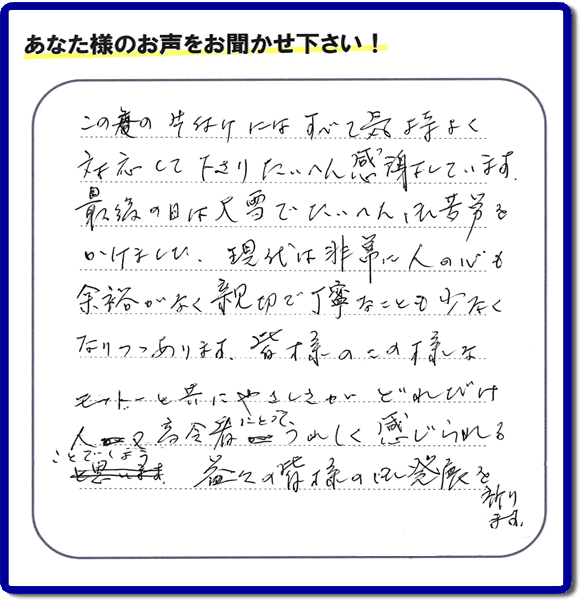 あなた様のお声をお聞かせ下さい！
この度の片付けにはすべて気持よく
対応して下さりたいへん感謝をしています.
最後の日は大雪でたいへんご苦労を
かけました. 現代は非常に人の心も
余裕がなく親切で丁寧なことも少なく
なりつつあります. 皆様のこの様な
モットーと共にやさしさが どれだけ
人 高令者にとって、うれしく感じられる
ことでしょう
と思います. 益々の皆様のご発展を
祈り
ます.